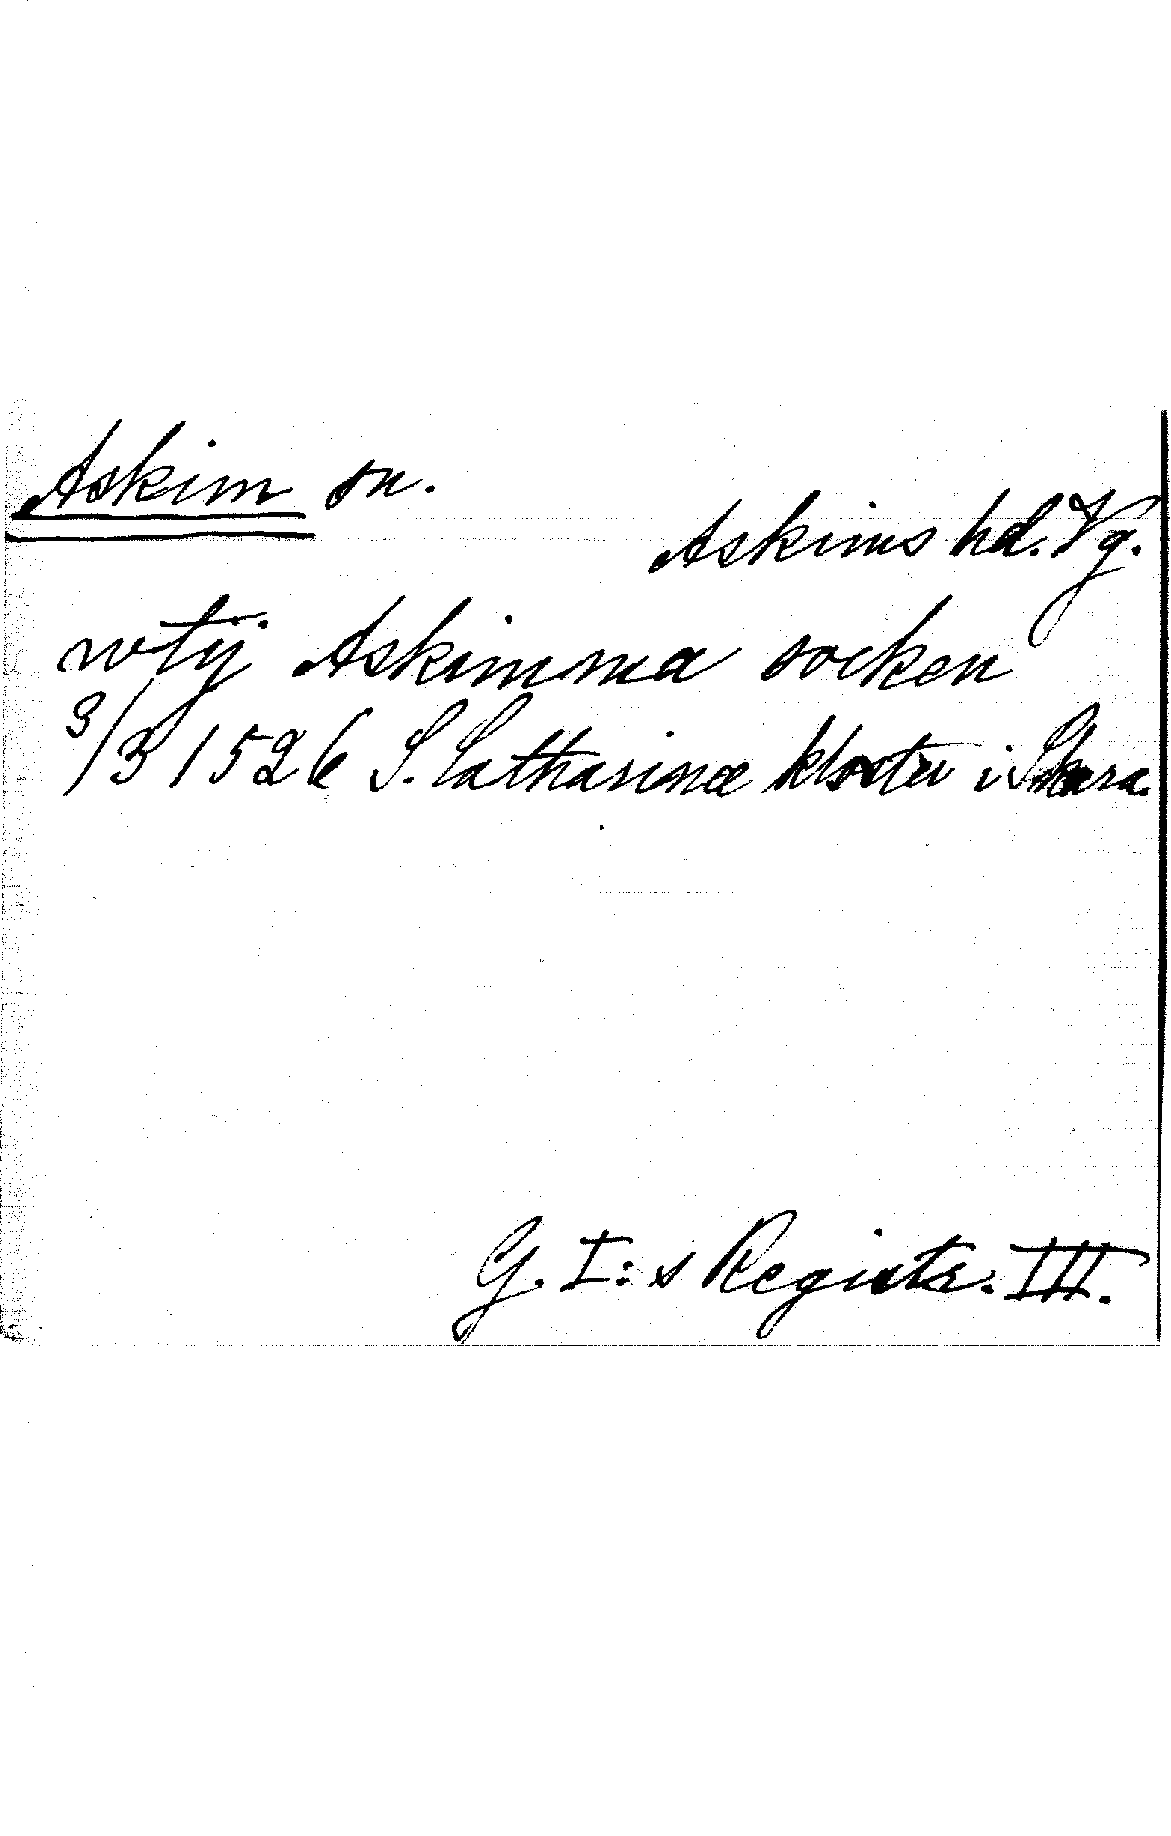 Askim sn.
Askims hd. Vg.
wtij Askimma socken
9/3 1526 S. Catharinæ kloster i Skara.
G. I:s Registr. III.